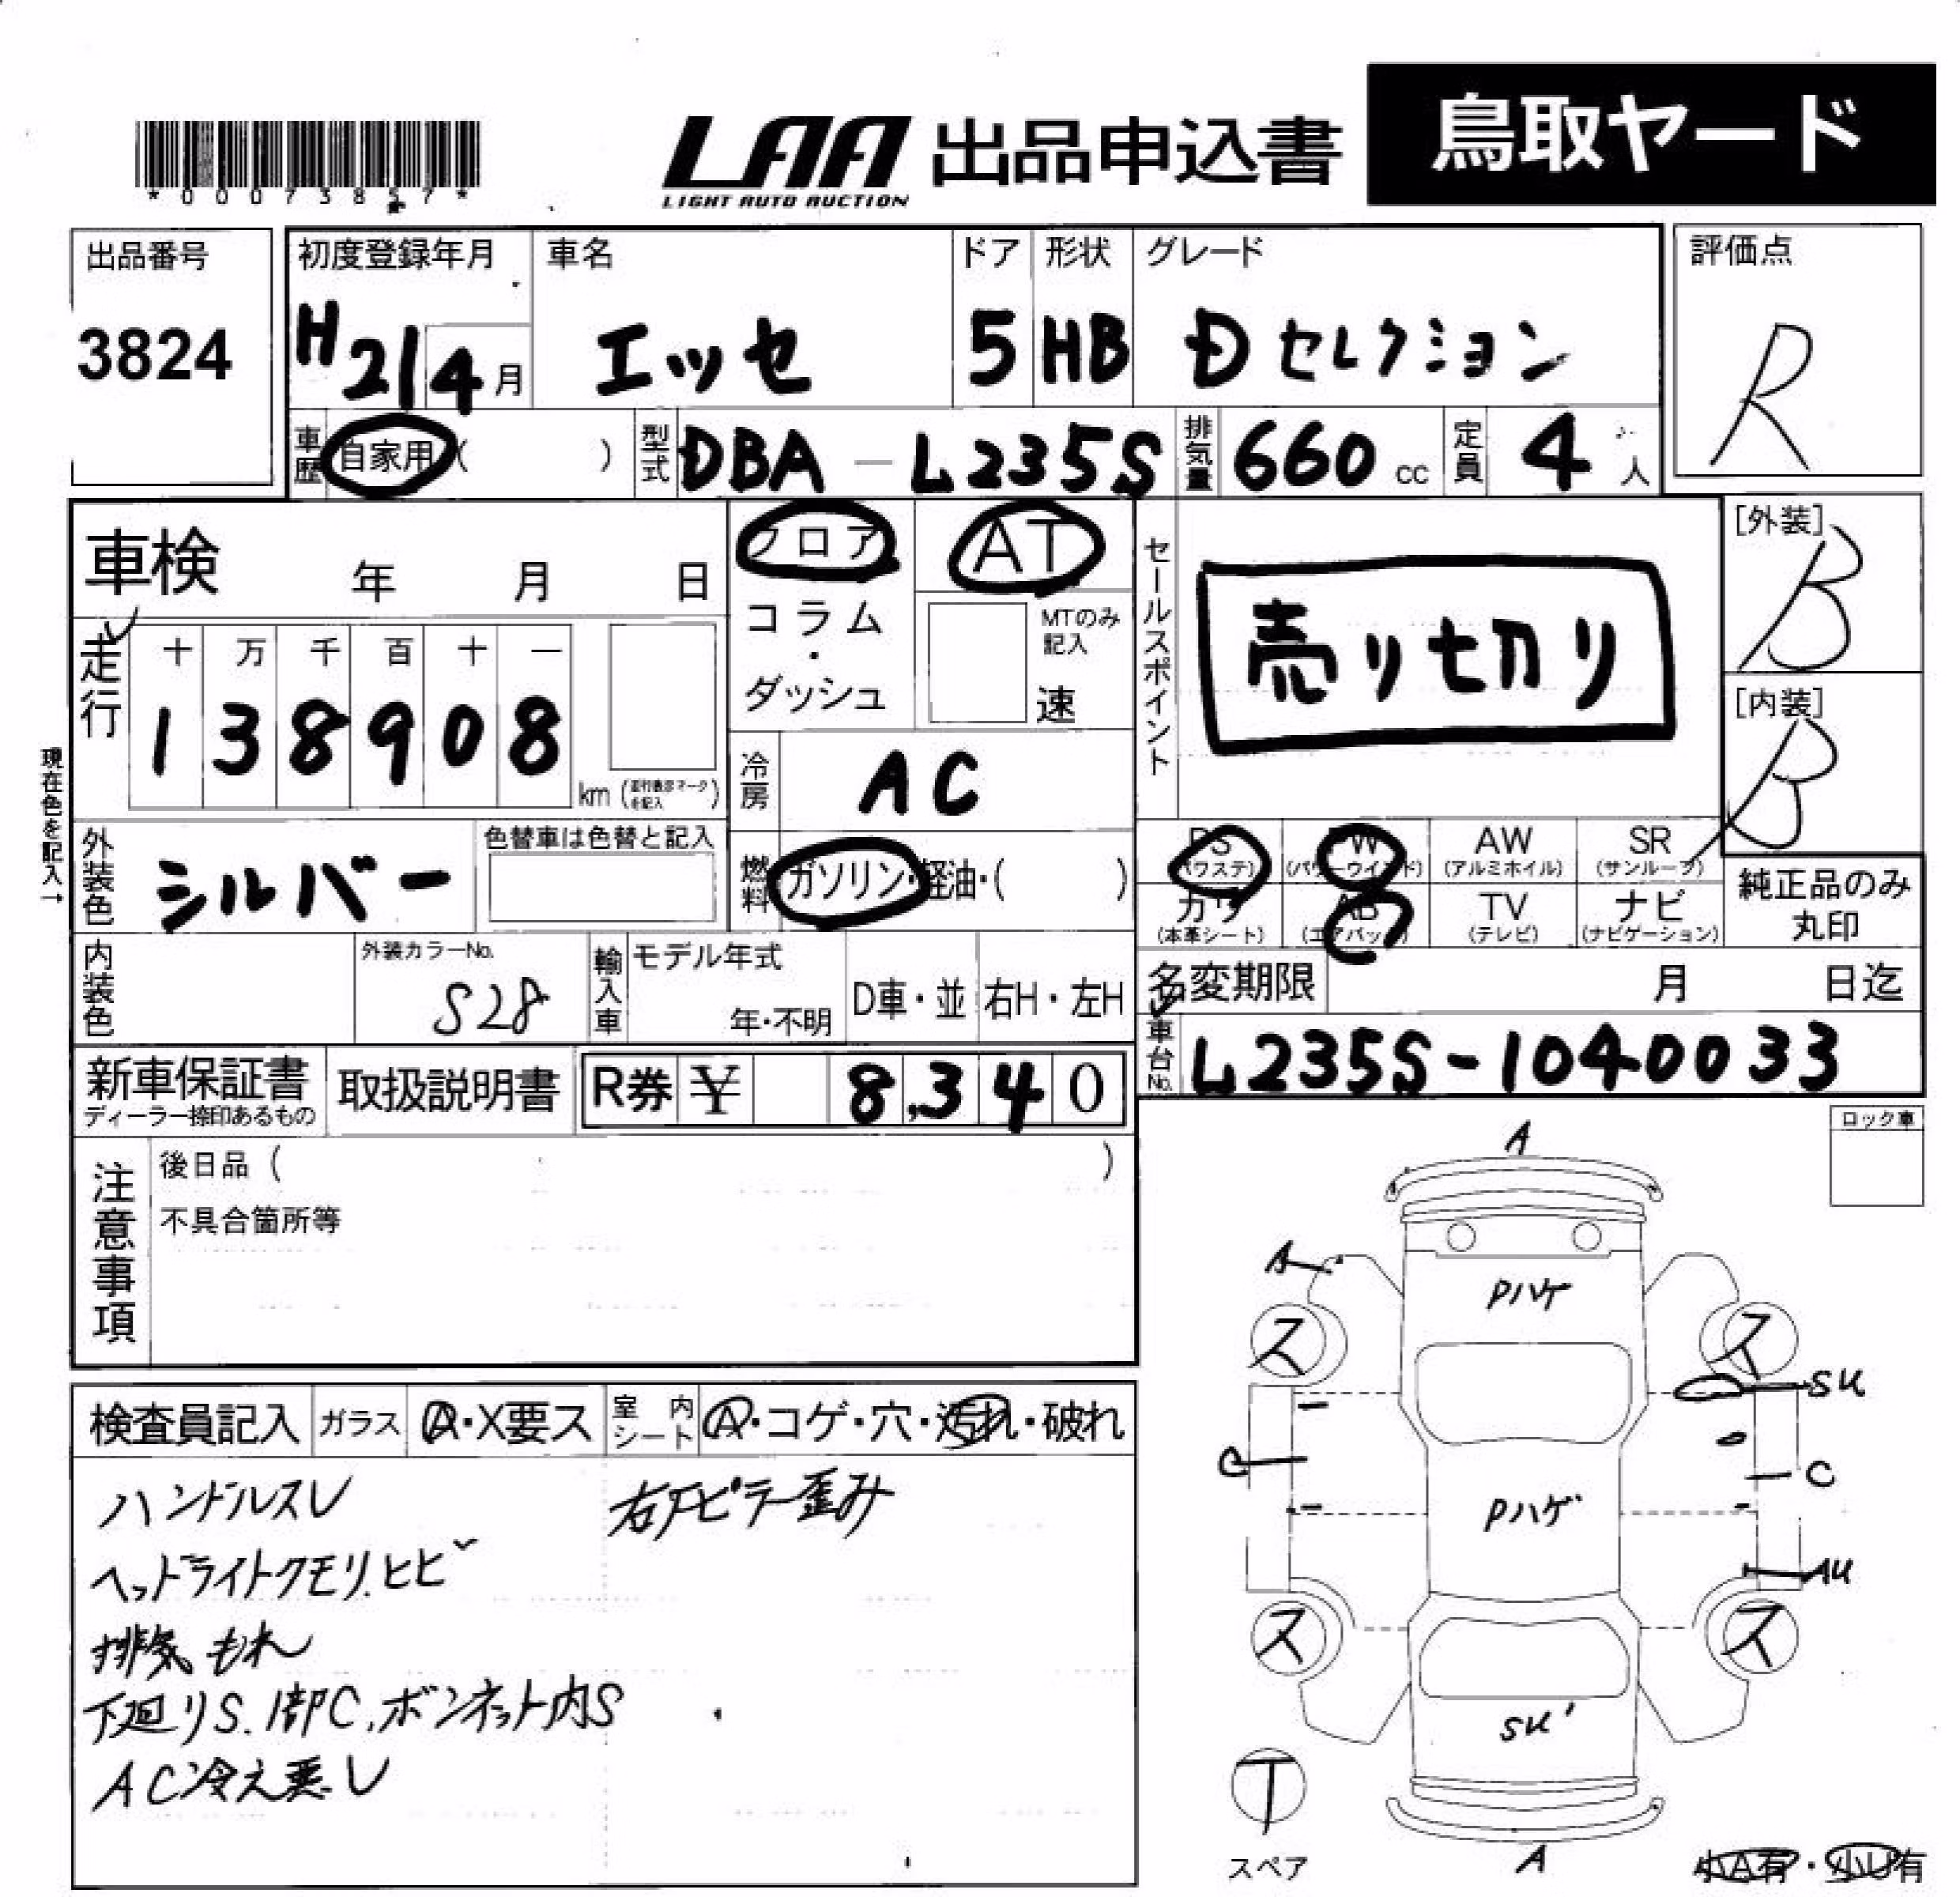 *00073857*
LAA 出品申込書 鳥取ヤード
LIGHT AUTO AUCTION
出品番号 初度登録年月 車名 ドア 形状 グレード 評価点
3824 H21 4月 エッセ 5 HB Dセレクション R
車歴 自家用 ( ) 型式 DBA-L235S 排気量 660 cc 定員 4 人
車検 年 月 日 フロア AT セールスポイント [外装] B
コラム・ダッシュ MTのみ記入 速 売り切り
走行 十 万 千 百 十 一
1 3 8 9 0 8 km (走行表示マークを記入) [内装] B
現在色を記入→
冷房 AC
外装色 シルバー 色替車は色替と記入 燃料 ガソリン・軽油・( )
PS (パワステ) PW (パワーウインド) AW (アルミホイル) SR (サンルーフ) 純正品のみ丸印
カワ (本革シート) AB (エアバック) TV (テレビ) ナビ (ナビゲーション)
内装色 外装カラーNo. S28 輸入車 モデル年式 年・不明 D車・並 右H・左H
名変期限 月 日迄
車台No. L235S-1040033
新車保証書 取扱説明書 R券 ¥ 8,340
ディーラー捺印あるもの
注意事項 後日品 ( )
不具合箇所等
ロック車
検査員記入 ガラス A・X要ス 室内シート A・コゲ・穴・汚れ・破れ
ハンドルスレ 右Fピラー歪み
ヘッドライトクモリ.ヒビ
排気もれ
下廻りS.1部C,ボンネット内S
AC冷え悪し
A
A
Pハゲ
ス ス
SU
C C
Pハゲ
AU
ス ス
SU'
T
スペア
A
小A有・小U有